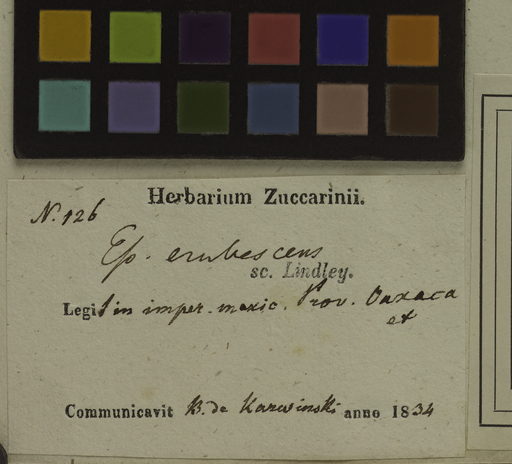 Herbarium Zuccarinii.
N. 126
Ep. erubescens
sc. Lindley.
Legit in imper. mexic. Prov. Oaxaca
et
Communicavit B. de Karwinski anno 1834